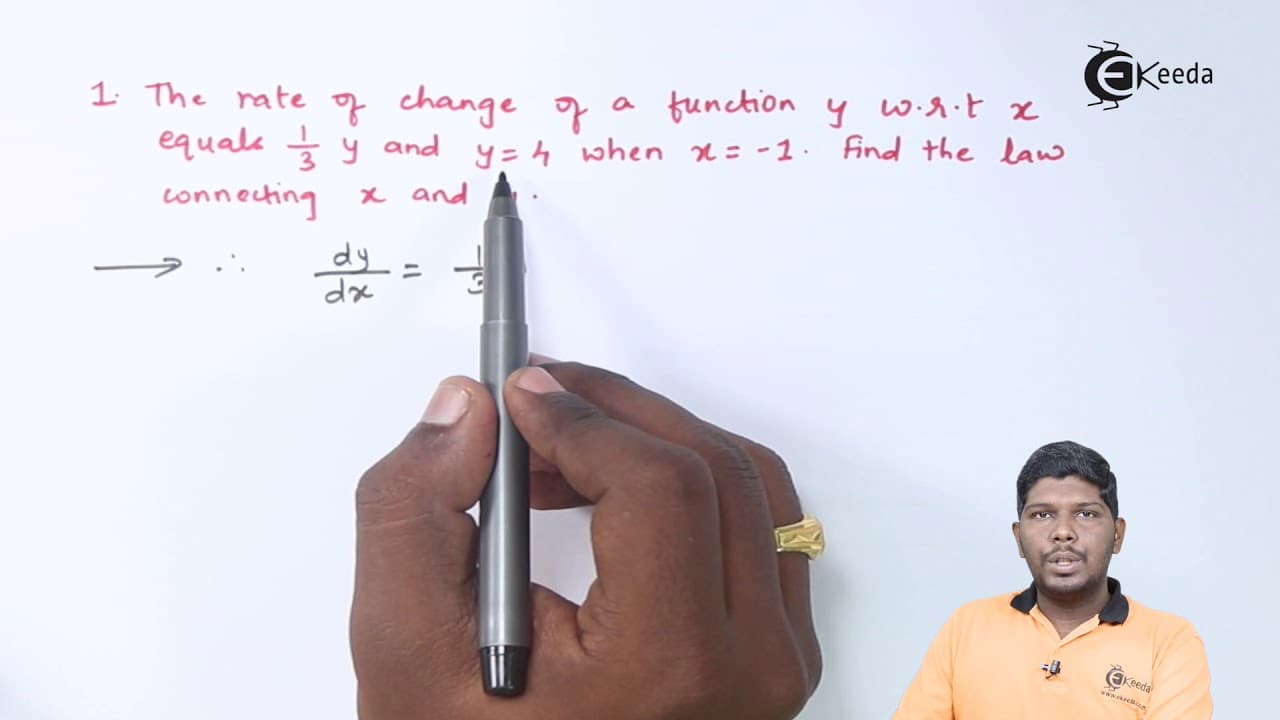 1. The rate of change of a function y w.r.t x
equals 1/3 y and y = 4 when x = -1. Find the law
connecting x and .
⟶ ∴ dy/dx = 1/3
EKeeda
EKeeda